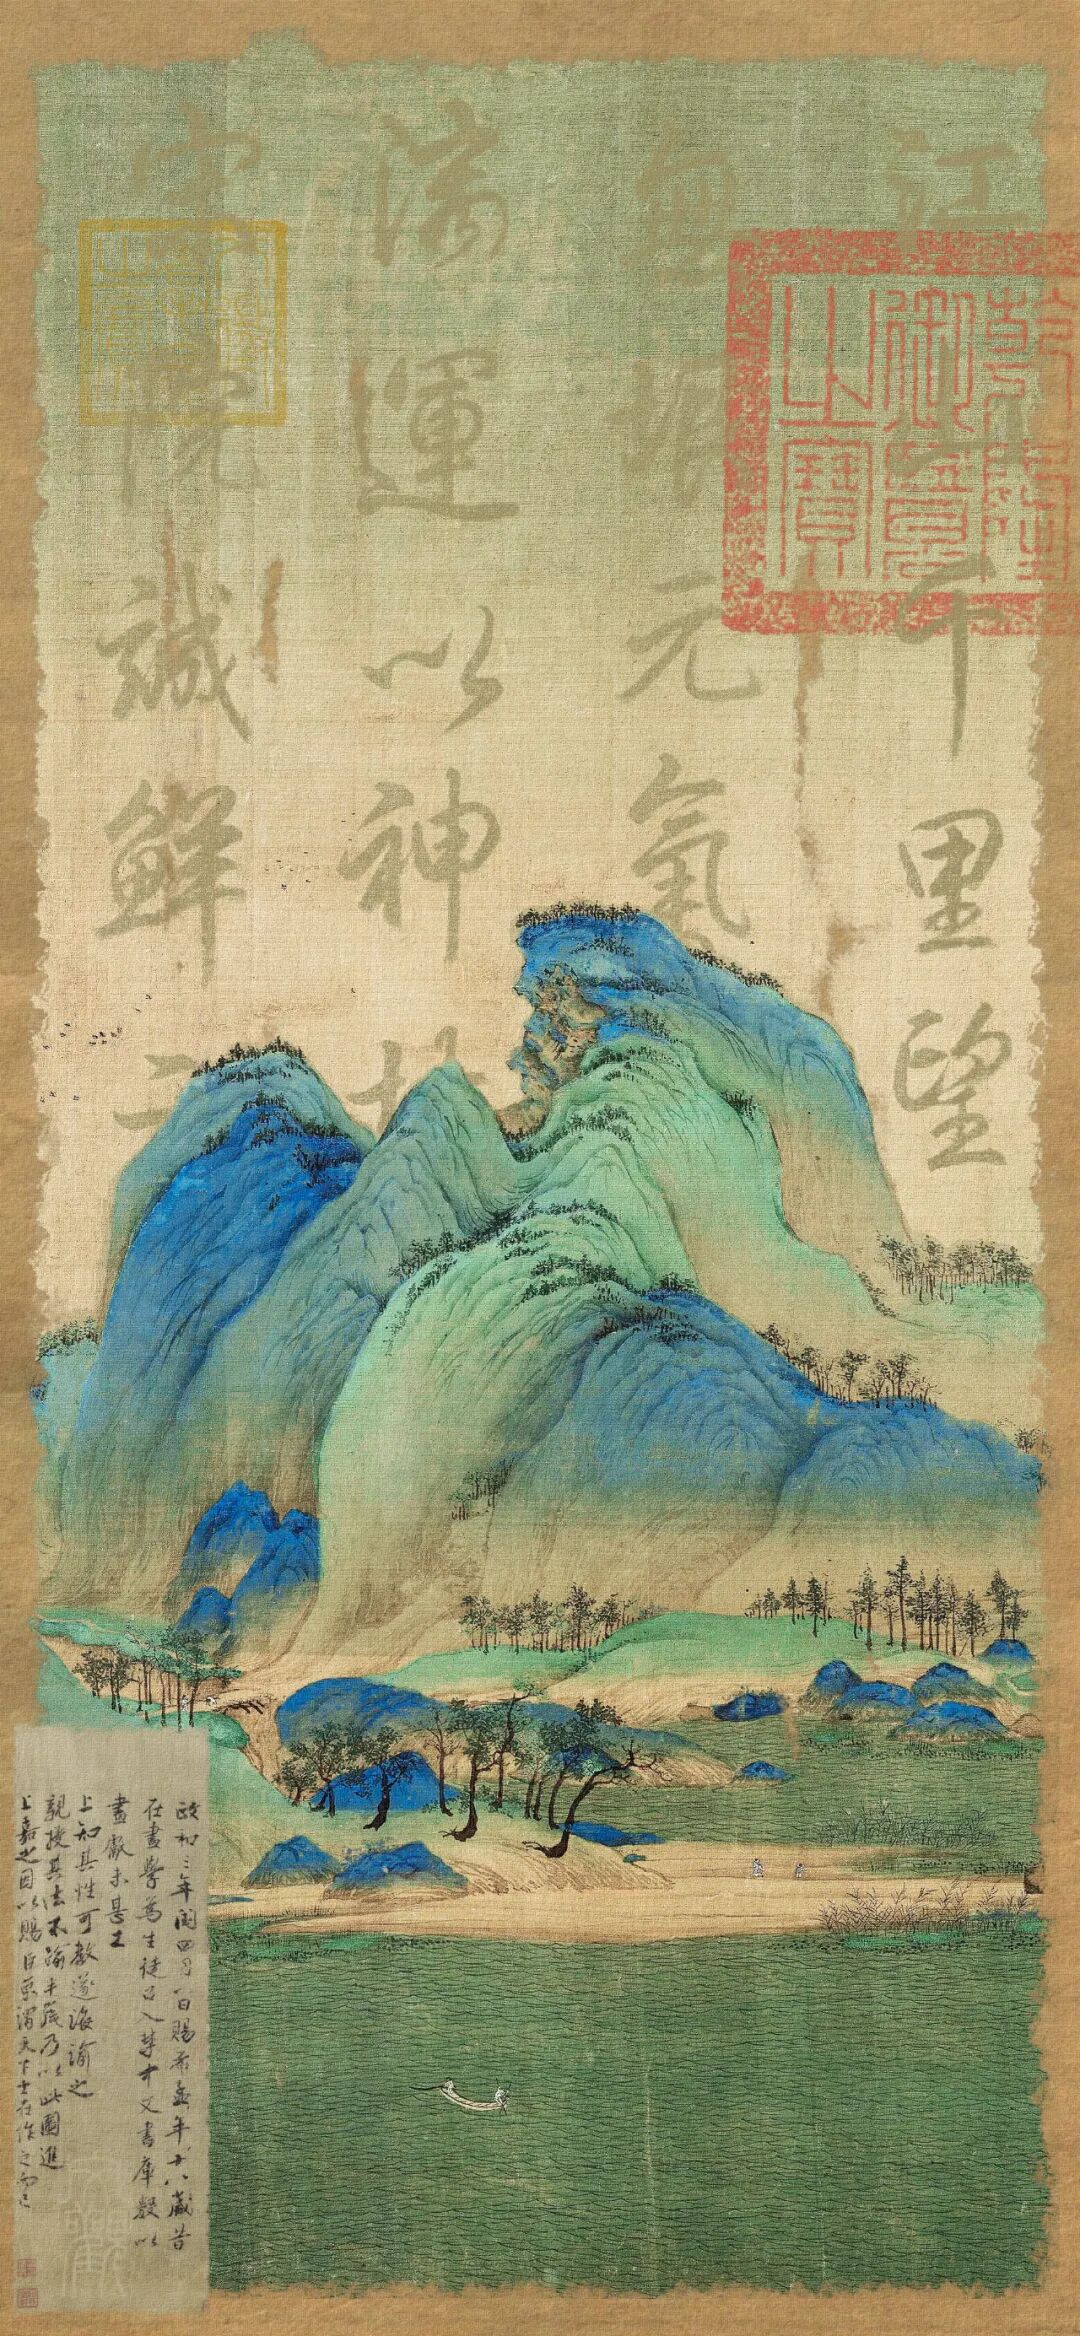 江山千里望
無垠元氣
漓運以神
宋院誠鮮二
乾隆
御覽
之寶
政和三年閏四月一日賜希孟年十八歲昔
在畫學為生徒召入禁中文書庫數以
畫獻未甚工
上知其性可教遂誨諭之
親授其法不踰半歲乃以此圖進
上嘉之因以賜臣京謂天下士在作之而已